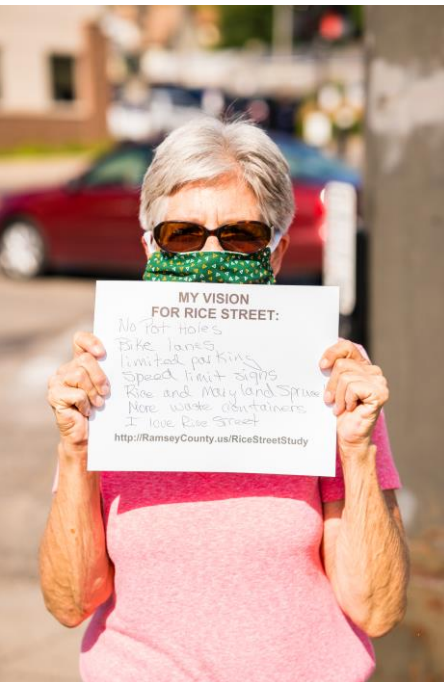 MY VISION
FOR RICE STREET:
No Pot Holes
Bike lanes
limited parking
Speed limit signs
Rice and Maryland Spruce
More waste containers
I love Rice Street
http://RamseyCounty.us/RiceStreetStudy